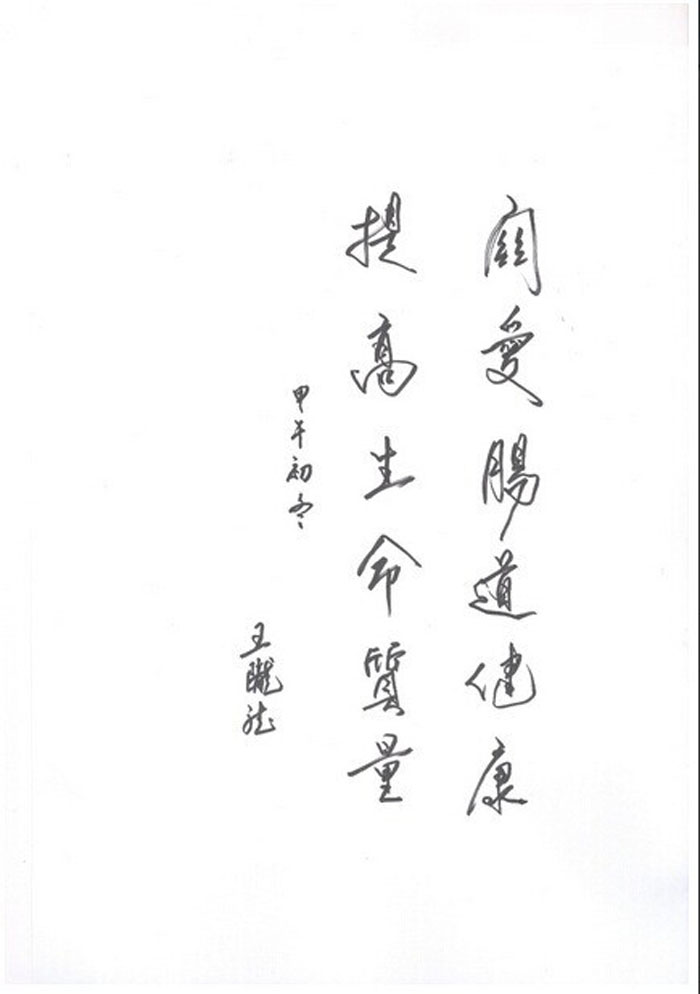 關愛腸道健康
提高生命質量
甲午初冬
王